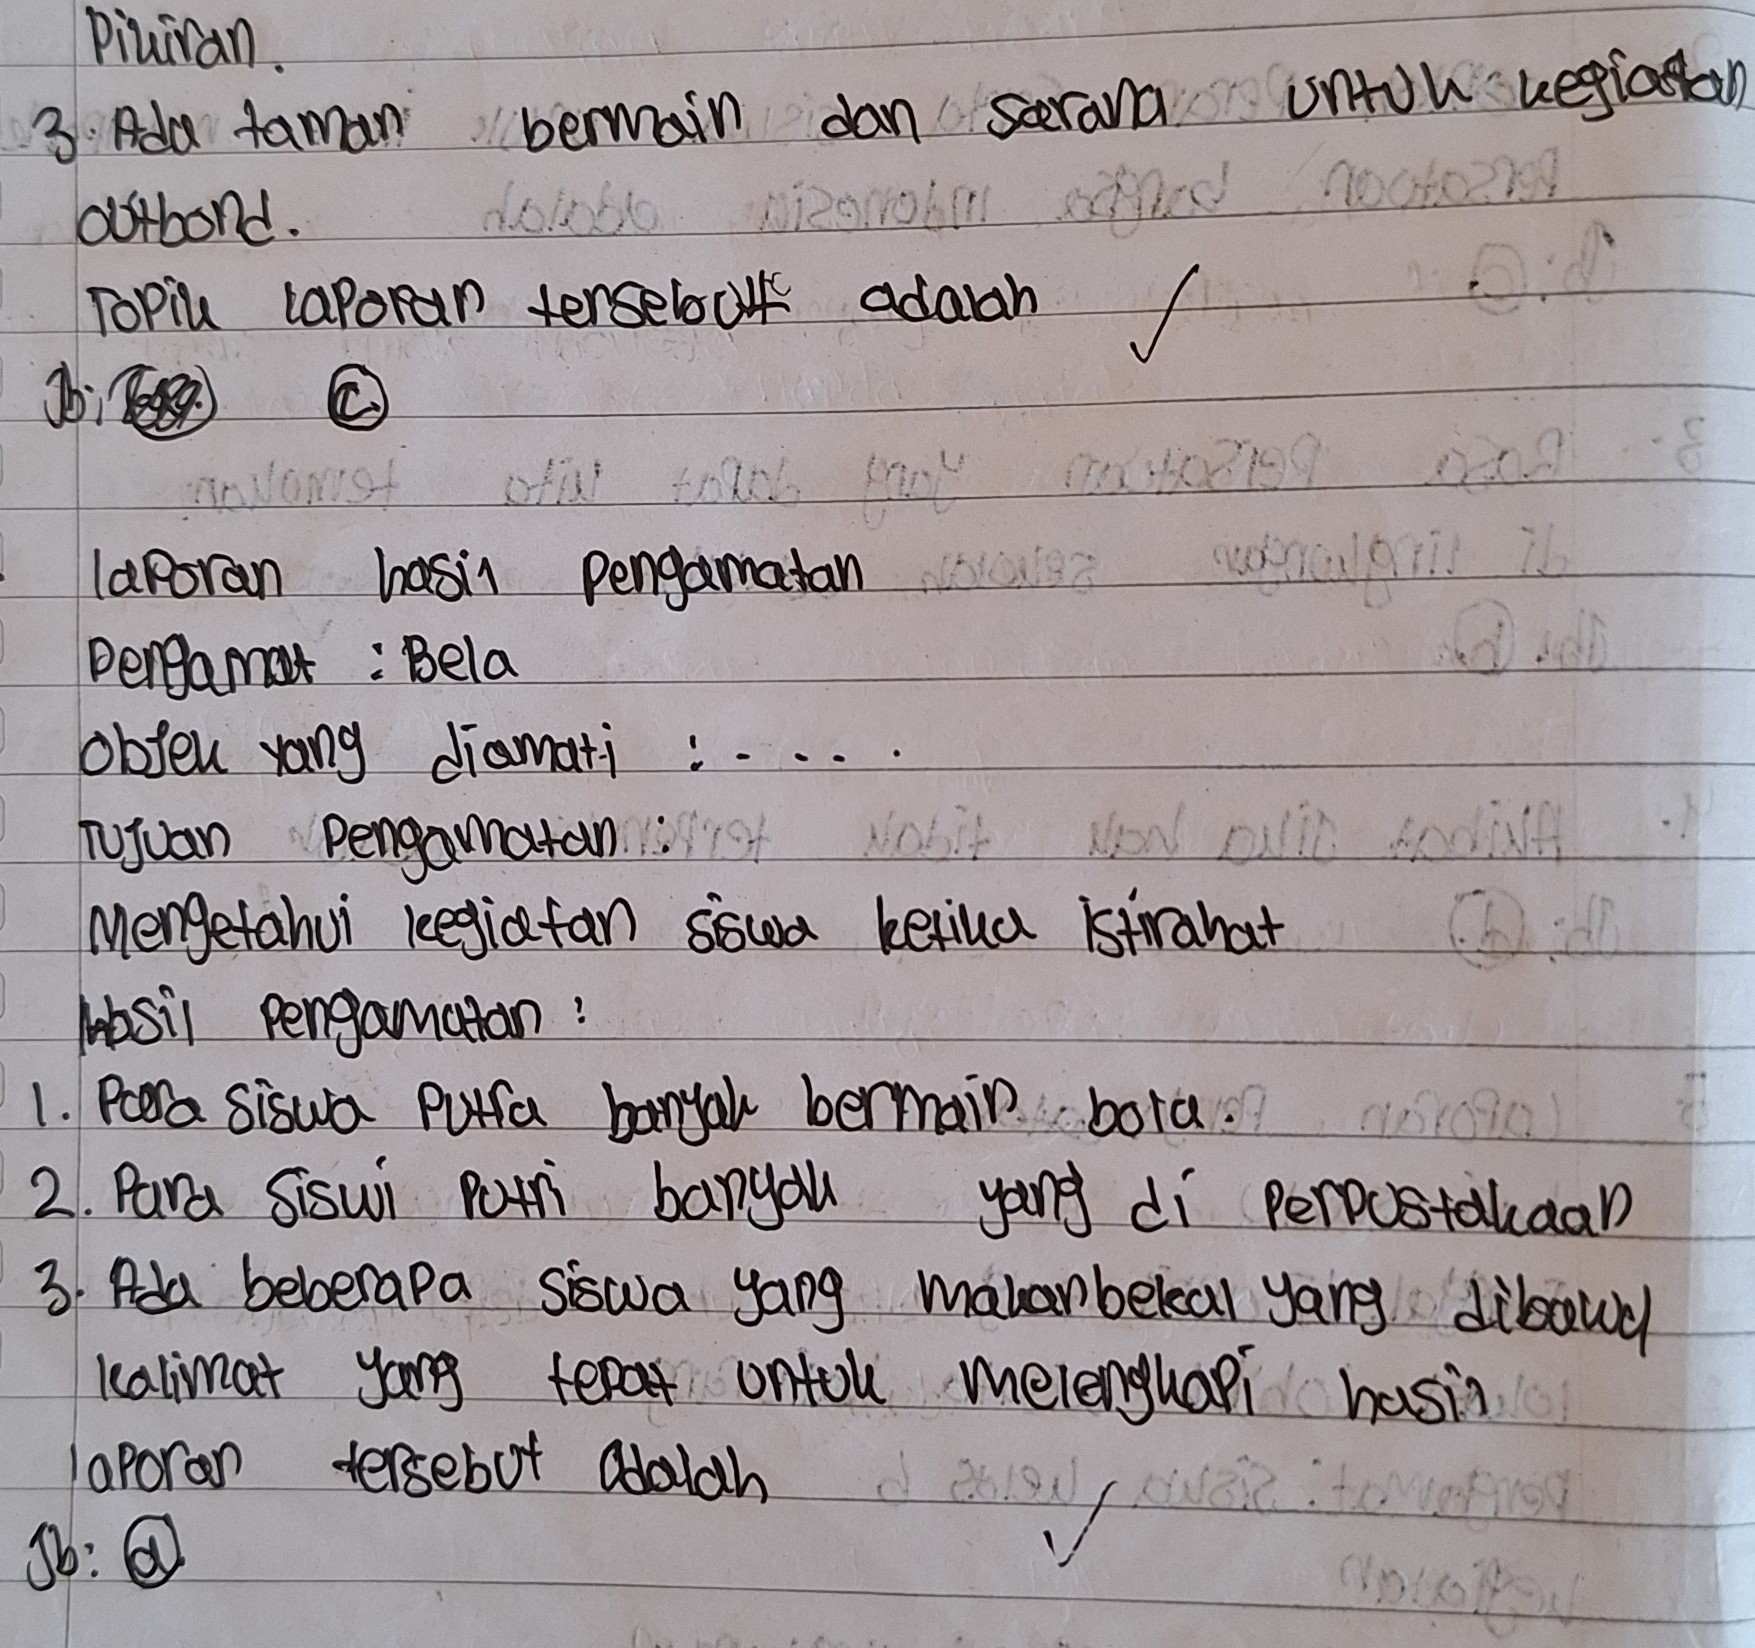 Pikiran.
3. Ada taman bermain dan sarana untuk kegiatan
outbond.
Topik laporan tersebut adalah
Jb: C.
laporan hasil pengamatan
Pengamat : Bela
Objek yang diamati : . . . . .
Tujuan Pengamatan :
Mengetahui kegiatan siswa ketika istirahat
Hasil Pengamatan :
1. Para siswa Putra banyak bermain bola.
2. Para siswi Putri banyak yang di Perpustakaan
3. Ada beberapa siswa yang makan bekal yang dibawa
kalimat yang tepat untuk melengkapi hasil
laporan tersebut adalah
Jb: d.